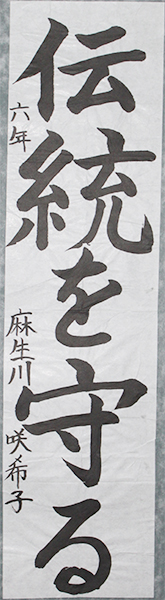 伝統を守る
六年 麻生川 咲希子